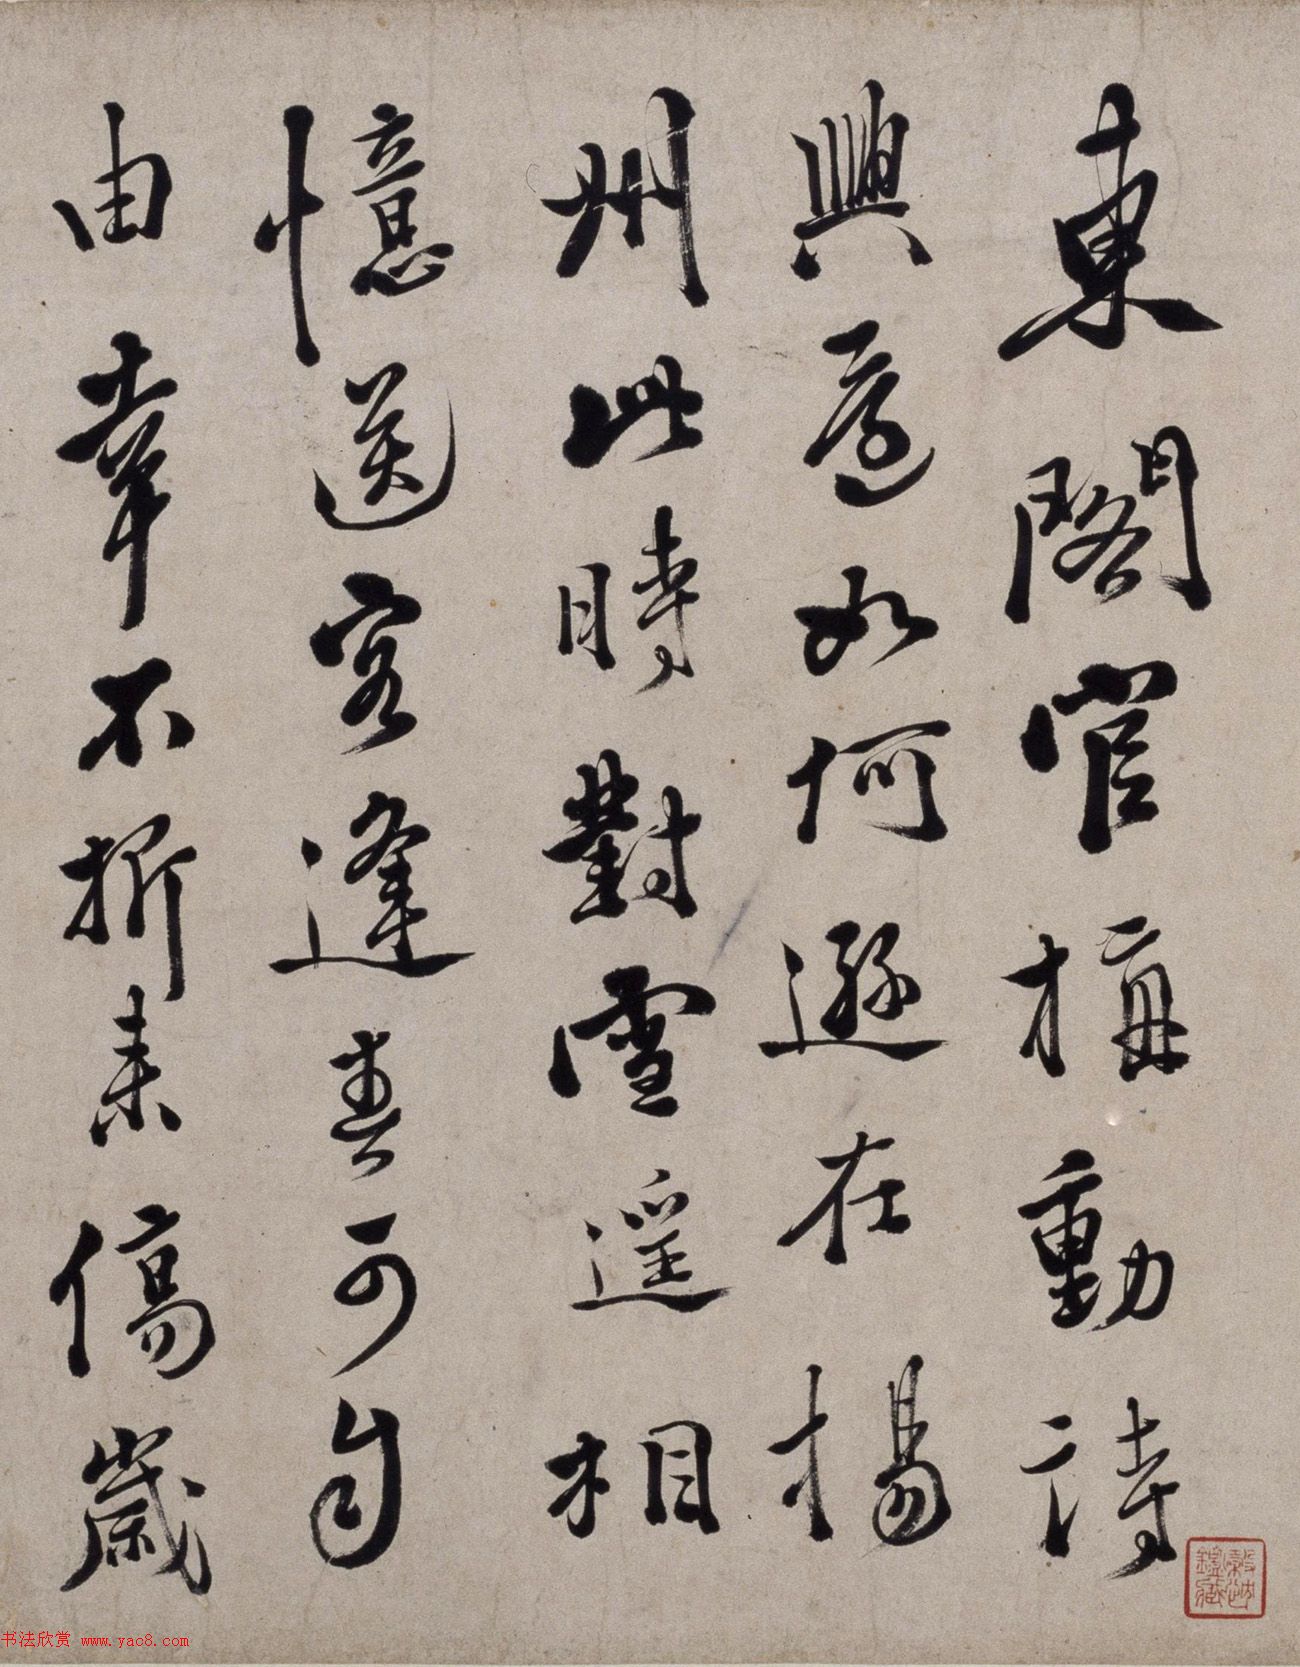 東閣官梅動詩
興還如何遜在揚
州此時對雪遙相
憶送客逢春可自
由幸不折来傷歲
书法欣赏 www.yac8.com